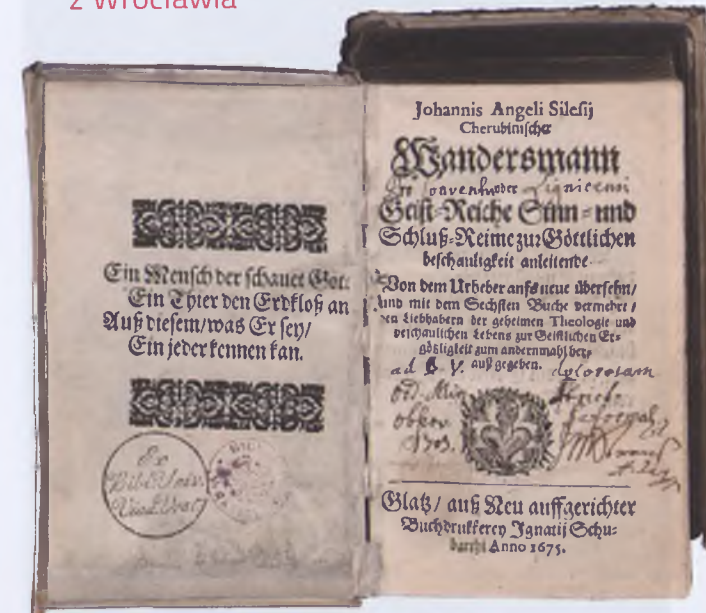 z Wrocławia
Ein Mensch der schauet Gott
Ein Thier den Erdkloß an
Auß diesem/was Er sey/
Ein jeder kennen kan.
Ex
Bibl. Univ.
Johannis Angeli Silesij
Cherubinischer
Wandersmann
Conventus oder Lignicensi
Geist-Reiche Sinn- und
Schluß-Reime zur Göttlichen
beschauligkeit anleitende
Von dem Urheber aufs neue übersehn/
und mit dem Sechsten Buche vermehrt/
den Liebhabern der geheimen Theologie und
beschaulichen Lebens zur Geistlichen Er-
götzligkeit zum andernmahl her-
ad B V. außgegeben. dolorosam
Ord. Min.
observ.
1703.
Glatz/ auß Neu auffgerichter
Buchdrukkerey Ignatij Schu-
barthi Anno 1675.